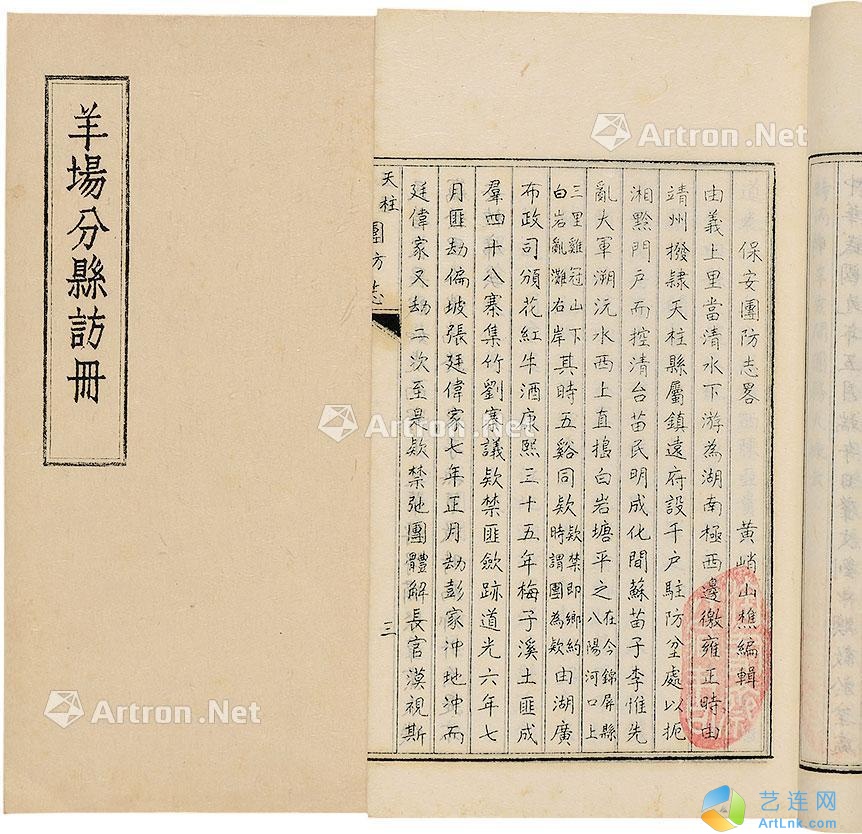 羊場分縣訪冊
保安團防志畧 黃峭山樵編輯
由義上里當清水下游為湖南極西邊徼雍正時由
靖州撥隸天柱縣屬鎮遠府設千戶駐防坌處以扼
湘黔門戶而控清台苗民明成化間蘇苗子李惟先
亂大軍溯沅水西上直搗白岩塘平之在今錦屏縣八陽河口上
三里雞冠山下白岩亂灘右岸其時五谿同欵欵禁即鄉約時謂團為欵由湖廣
布政司頒花紅牛酒康熙三十五年梅子溪土匪成
羣四十八寨集竹劉寨議欵禁匪歛跡道光六年七
月匪劫偏坡張廷偉家七年正月劫彭家沖地沖而
廷偉家又劫二次至是欵禁弛團體解長官漠視斯
天柱 團防志
三
Artron.Net
Artron.Net
Artron.Net
Artron.Net
Artron.Net
艺连网
ArtLnk.com